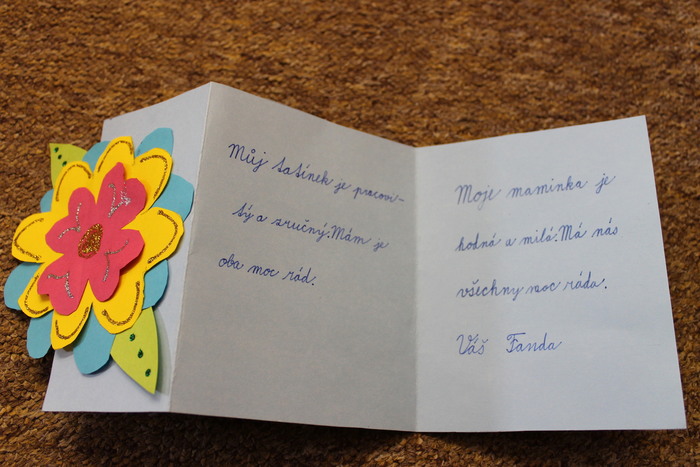 Můj tatínek je pracovi-
tý a zručný. Mám je
oba moc rád.
Moje maminka je
hodná a milá. Má nás
všechny moc ráda.
Váš Fanda